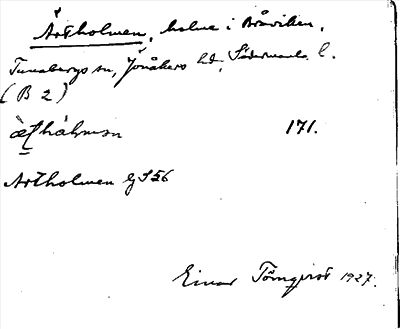 Ärtholmen, holme i Bråviken,
Tunabergs sn, Jönåkers hd, Södermanl. l.
(B 2)
171.
Artholmen GS56
Einar Törnqvist 1927.